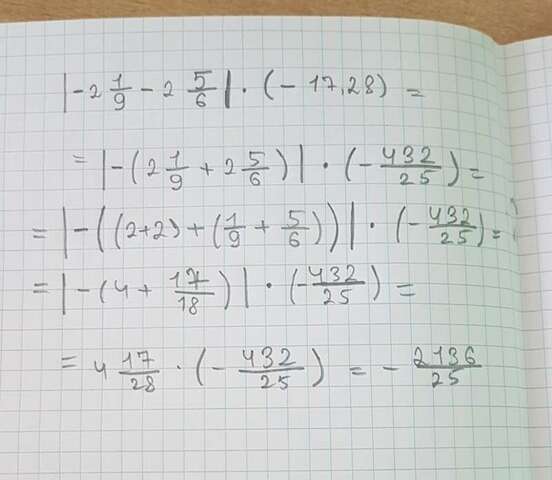 |-2 1/9 - 2 5/6| · (-17,28) =
= |-(2 1/9 + 2 5/6)| · (-432/25) =
= |-((2+2)+(1/9 + 5/6))| · (-432/25) =
= |-(4 + 17/18)| · (-432/25) =
= 4 17/28 · (-432/25) = -2136/25